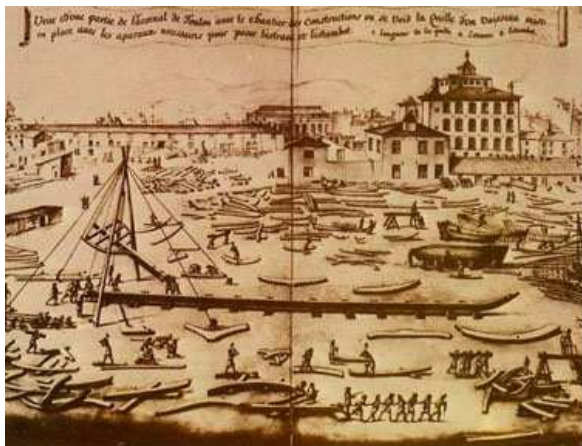 Veue d'une partie de l'arcenal de Toulon avec le chantier des Constructions ou se Void la Quille d'un Vaisseau mise
en place avec les aparaux pour poser l'estrave et l'estambot. Longueur de la quille